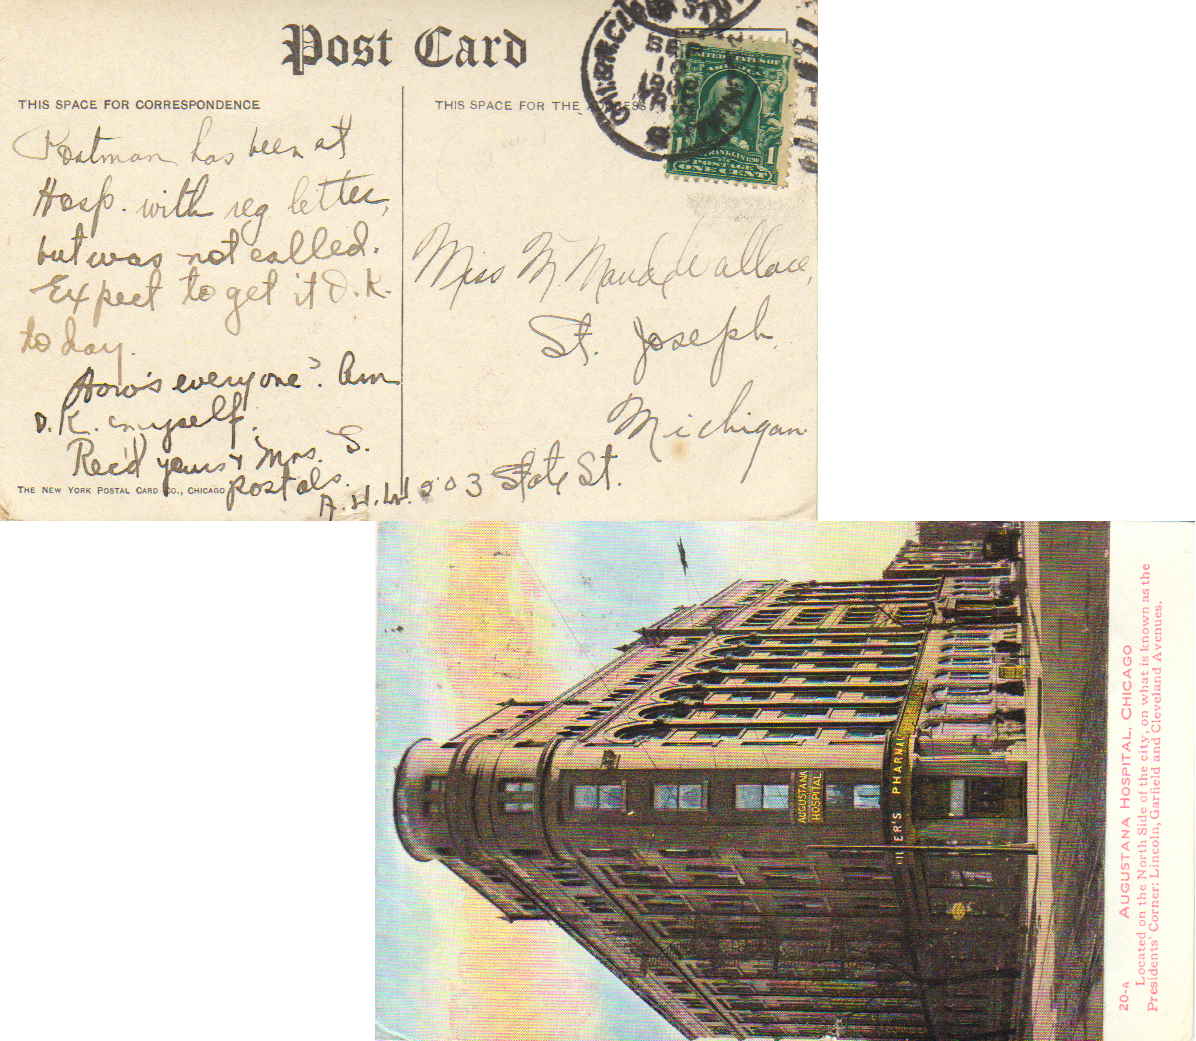 Post Card
THIS SPACE FOR CORRESPONDENCE
THIS SPACE FOR THE ADDRESS
Postman has been at
Hosp. with reg letter,
but was not called.
Expect to get it O.K.
to day.
How's everyone? Am
O.K. myself.
Rec'd yours & Mrs. S.
postals.
A.H.W. 303 State St.
THE NEW YORK POSTAL CARD CO., CHICAGO
UNITED STATES OF
AMERICA
FRANKLIN
1 POSTAGE 1
ONE CENT
Miss M Maude Wallace,
St. Joseph,
Michigan
AUGUSTANA
HOSPITAL
PHARMA
20-A AUGUSTANA HOSPITAL, CHICAGO
Located on the North Side of the city, on what is known as the
Presidents' Corner: Lincoln, Garfield and Cleveland Avenues.